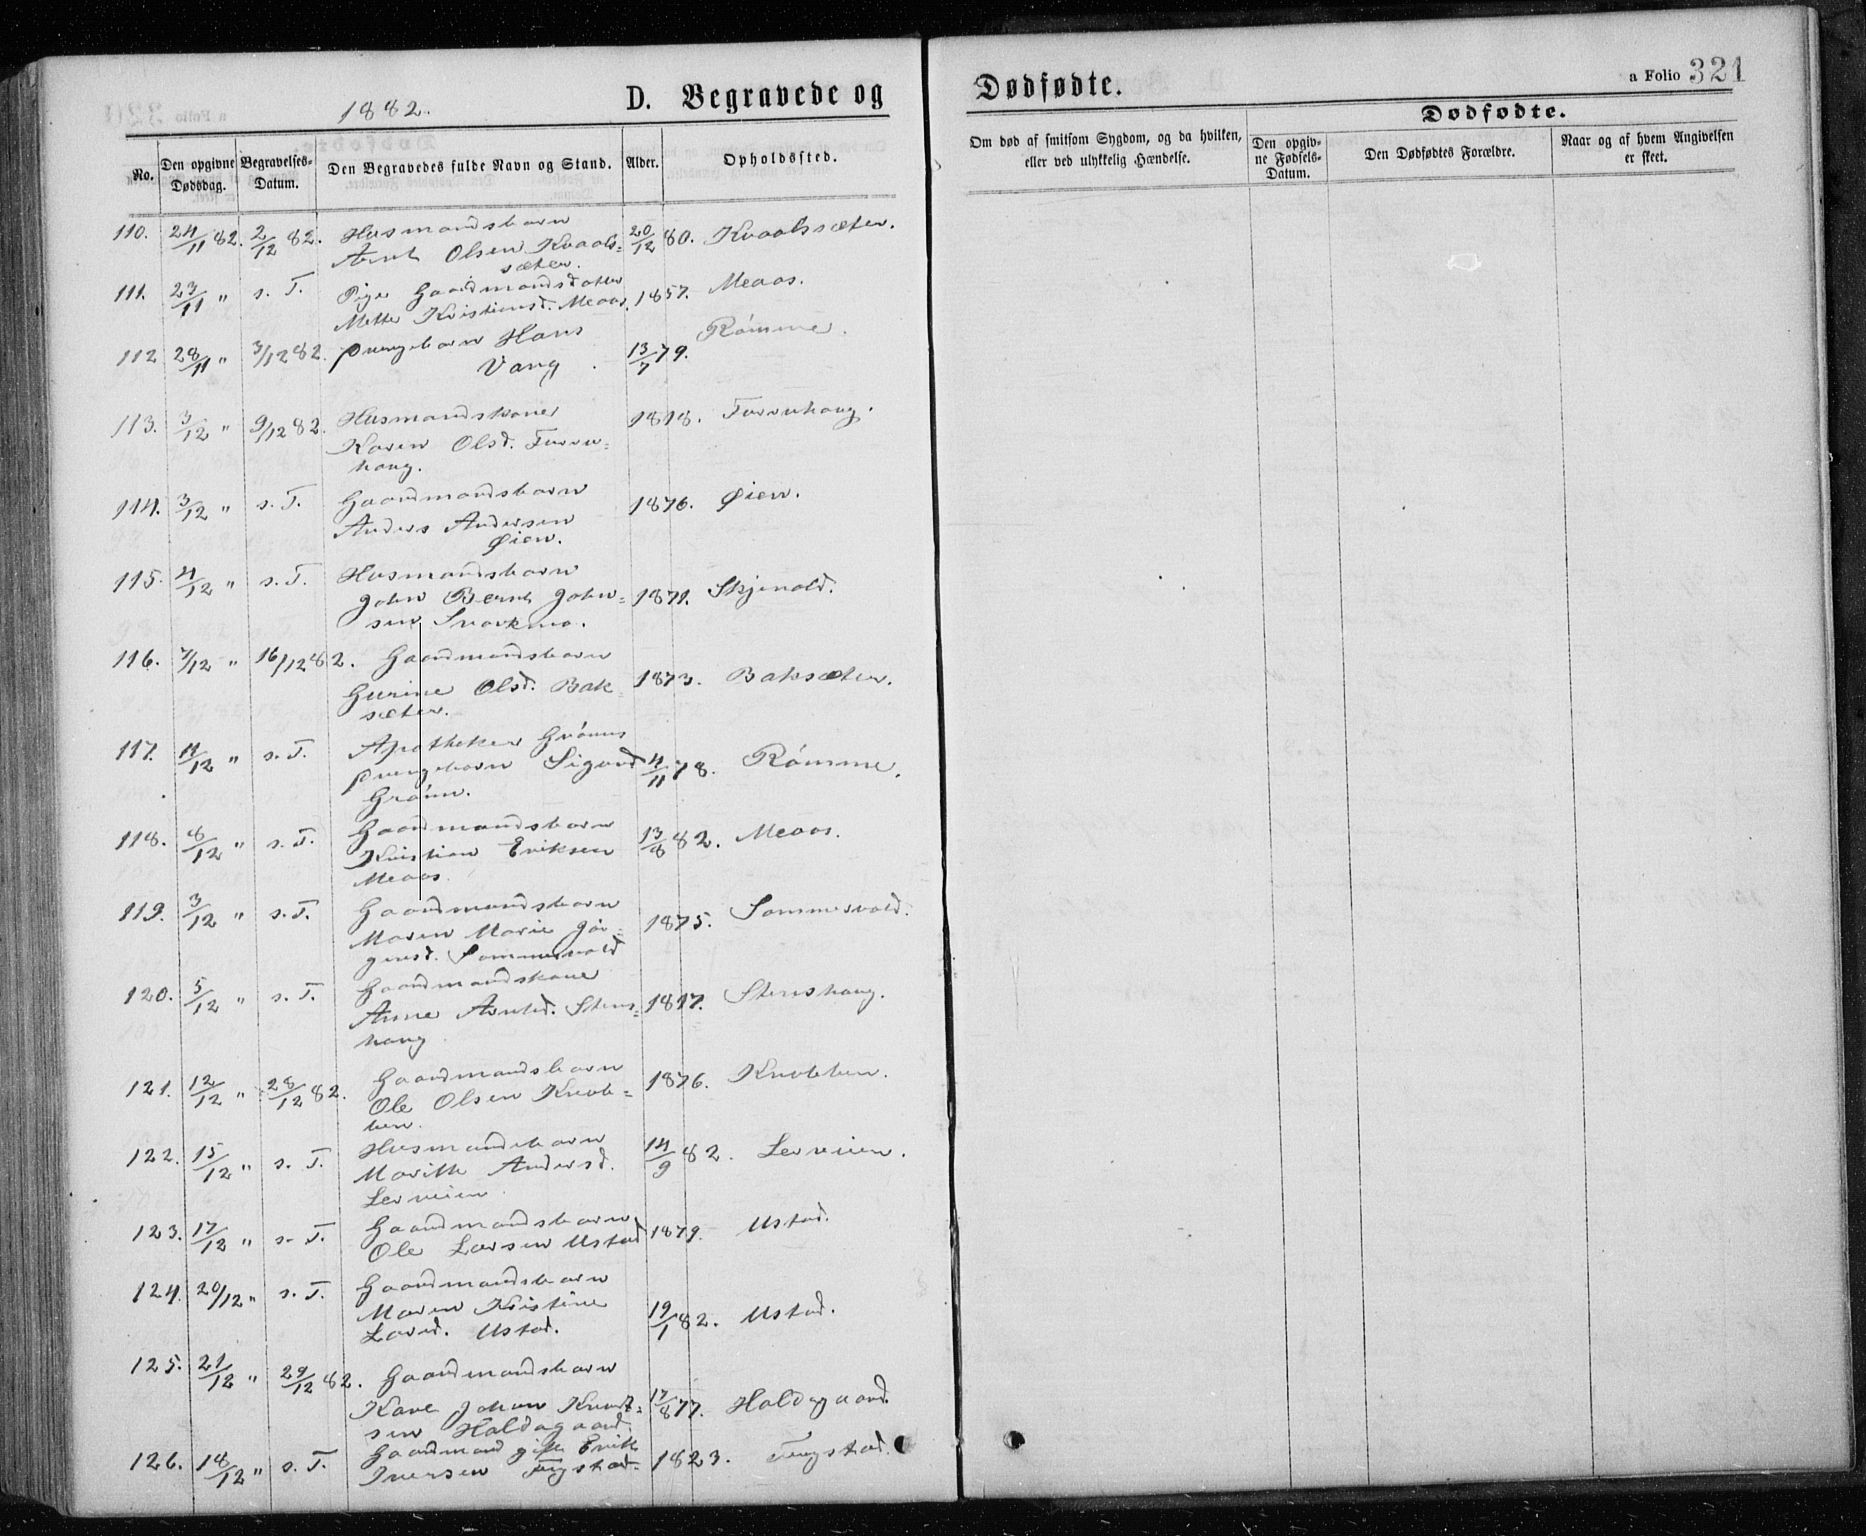 1882.
D. Begravede og
Dødfødte.
a Folio 321
No.
Den opgivne Dødsdag.
Begravelses-Datum.
Den Begravedes fulde Navn og Stand.
Alder.
Opholdssted.
Om død af smitsom Sygdom, og da hvilken, eller ved ulykkelig Hændelse.
Dødfødte.
Den opgiv-ne Fødsels-Datum.
Den Dødfødtes Forældre.
Naar og af hvem Angivelsen er skeet.
110. 24/11 82. 2/12 82. Husmandsbarn 20/12 80. Kvaalssæter.
Arnt Olsen Kvaals-
sæter.
111. 23/11 " s. T. Pige Gaardmandsdatter
Mette Kristiansd. Meaas. 1857. Meaas.
112 28/11 " 3/12 82. Pungebarn Hans 13/7 79. Rømme.
Vang.
113. 3/12 " 9/12 82. Husmandskone 1818. Furuhaug.
Karen Olsd. Furu-
haug.
114. 3/12 " s. T. Gaardmandsbarn 1876. Øien.
Anders Andersen
Øien.
115. 4/12 " s. T. Husmandsbarn
John Bernt John- 1871. Skjenald.
sen Svorkmo.
116. 7/12 " 16/12 82. Gaardmandsbarn
Gurine Olsd. Bak- 1873. Baksæter.
sæter.
117. 11/12 " s. T. Apotheker Grønns
Pungebarn Sigurd 4/11 78. Rømme.
Grønn.
118. 8/12 " s. T. Gaardmandsbarn 13/8 82. Meaas.
Kristian Eriksen
Meaas.
119. 3/12 " s. T. Gaardmandsbarn 1875. Sommervold.
Maren Marie Jør-
gensd. Sommervold
120. 5/12 " s. T. Gaardmandskone
Anne Arntsd. Stens- 1817. Stenshaug.
haug
121. 12/12 " 28/12 82. Gaardmandsbarn 1876. Knubben.
Ole Olsen Knub-
ben.
122. 15/12 " s. T. Husmandsbarn 14/9 82. Lerveien.
Maritte Andersd.
Lerveien
123. 17/12 " s. T. Gaardmandsbarn
Ole Larsen Ustad 1879. Ustad.
124. 20/12 " s. T. Gaardmandsbarn
Maren Kristine 19/1 82. Ustad.
Larsd. Ustad.
125. 21/12 " 29/12 82. Gaardmandsbarn
Kare Johan Knut- 17/8 77. Holdagaard.
sen Holdagaard.
126. 18/12 " s. T. Gaardmand gift Erik
Iversen Tingstad. 1823. Tingstad.